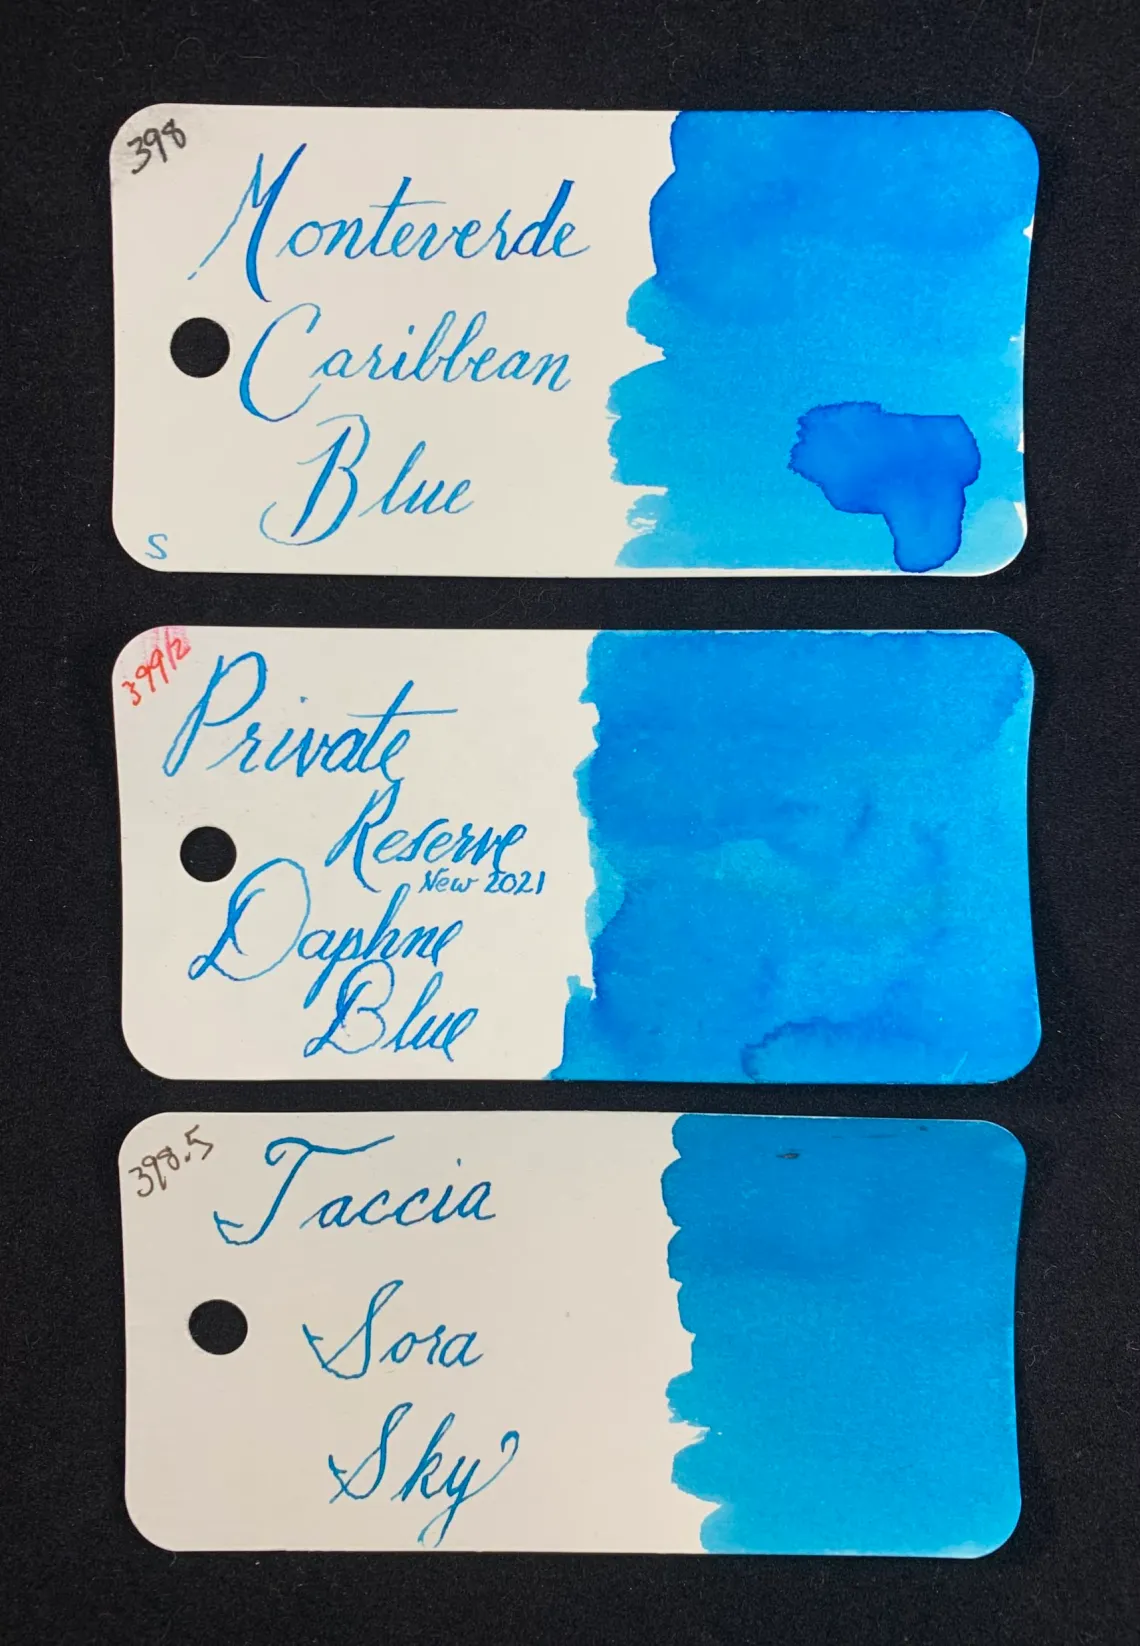 398
Monteverde
Caribbean
Blue
S
399/2
Private
Reserve
New 2021
Daphne
Blue
398.5
Taccia
Sora
Sky